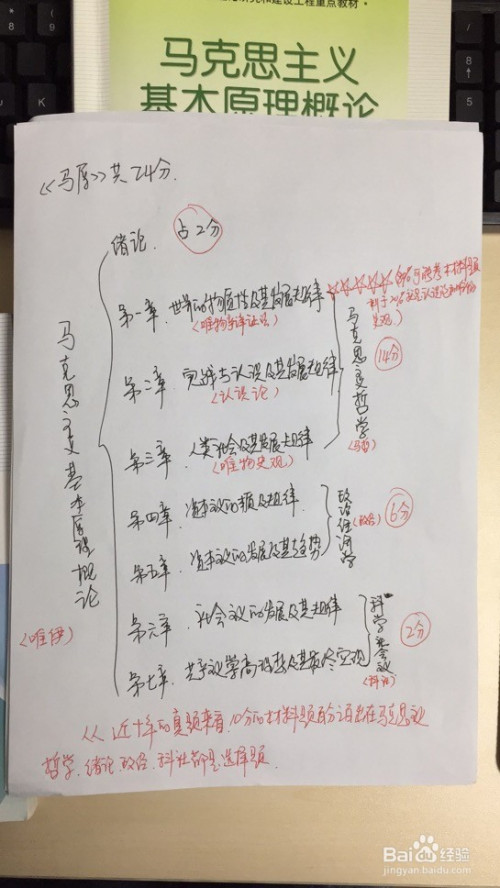 马克思主义
基本原理概论
《马原》共24分.
绪论. 占2分
第一章. 世界的物质性及其发展规律
(唯物辩证法)
第二章. 实践与认识及其发展规律
(认识论)
第三章. 人类社会及其发展规律
(唯物史观)
马克思主义哲学
(马哲)
14分
第四章. 资本主义的本质及规律
第五章. 资本主义的发展及其趋势
政治经济学
(政经)
6分
第六章. 社会主义的发展及其规律
第七章. 共产主义崇高理想及其最终实现
科学社会主义
(科社)
2分
马克思主义基本原理概论
近十年的真题来看, 10分的材料题百分百出在马克思主义
哲学, 绪论, 政经, 科社都是选择题.
Baidu 经验
jingyan.baidu.com